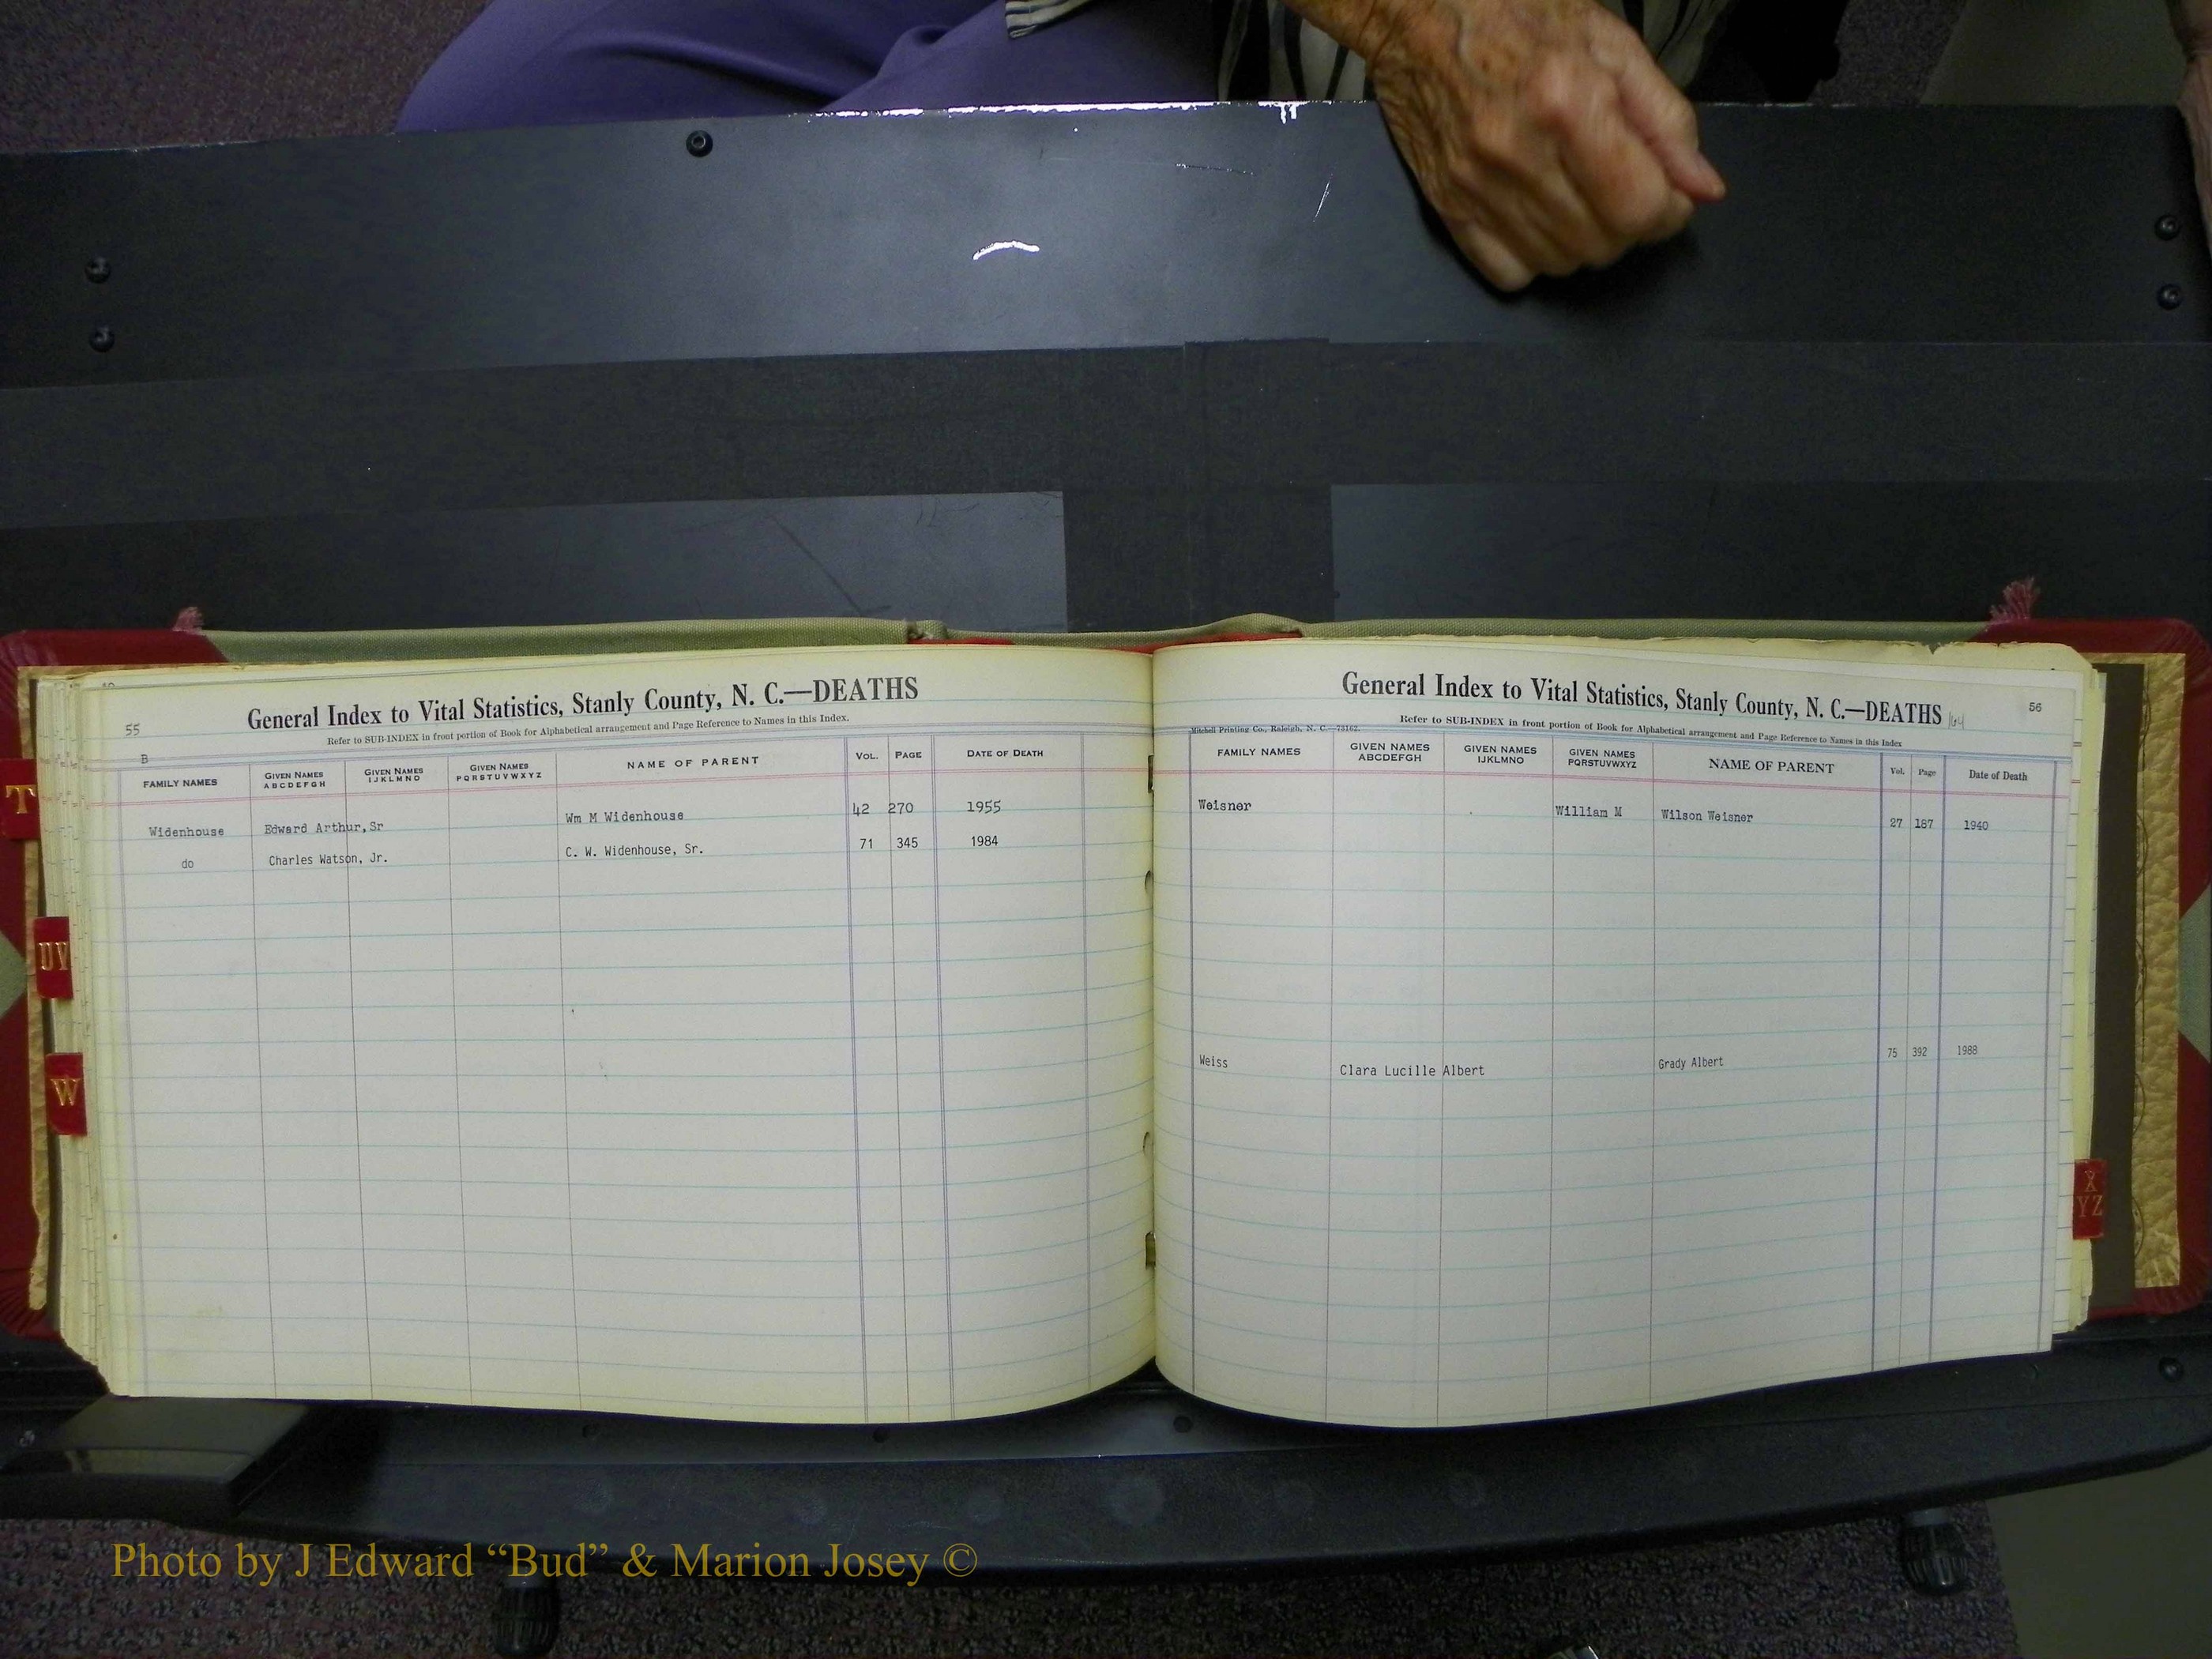 55
General Index to Vital Statistics, Stanly County, N. C.—DEATHS
Refer to SUB-INDEX in front portion of Book for Alphabetical arrangement and Page Reference to Names in this Index.
B
FAMILY NAMES GIVEN NAMES ABCDEFGH GIVEN NAMES IJKLMNO GIVEN NAMES PQRSTUVWXYZ NAME OF PARENT VOL. PAGE DATE OF DEATH
Widenhouse Edward Arthur,Sr Wm M Widenhouse 42 270 1955
do Charles Watson, Jr. C. W. Widenhouse, Sr. 71 345 1984
T
UV
W
General Index to Vital Statistics, Stanly County, N. C.—DEATHS 164
56
Refer to SUB-INDEX in front portion of Book for Alphabetical arrangement and Page Reference to Names in this Index
Mitchell Printing Co., Raleigh, N. C.—73162.
FAMILY NAMES GIVEN NAMES ABCDEFGH GIVEN NAMES IJKLMNO GIVEN NAMES PQRSTUVWXYZ NAME OF PARENT Vol. Page Date of Death
Weisner William M Wilson Weisner 27 187 1940
Weiss Clara Lucille Albert Grady Albert 75 392 1988
X
YZ
Photo by J Edward “Bud” & Marion Josey ©